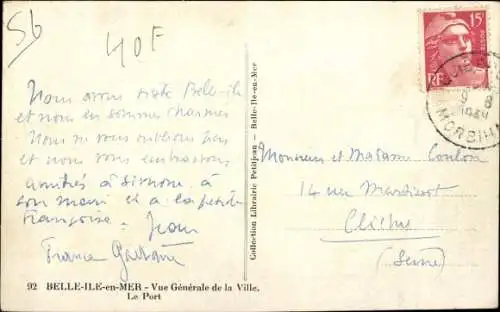 56
40F
Nous avons visité Belle-ile
et nous en sommes charmés
Nous ne vous oublions pas
et nous vous embrassons
amitiés à Simone à
son mari et à la petite
Françoise. Jean
France
92 BELLE-ILE-en-MER - Vue Générale de la Ville.
Le Port
Collection Librairie Petitjean - Belle-Ile-en-Mer
15F
RF
MORBIHAN
Monsieur et Madame Coulon
14 rue
Clichy
(Seine)